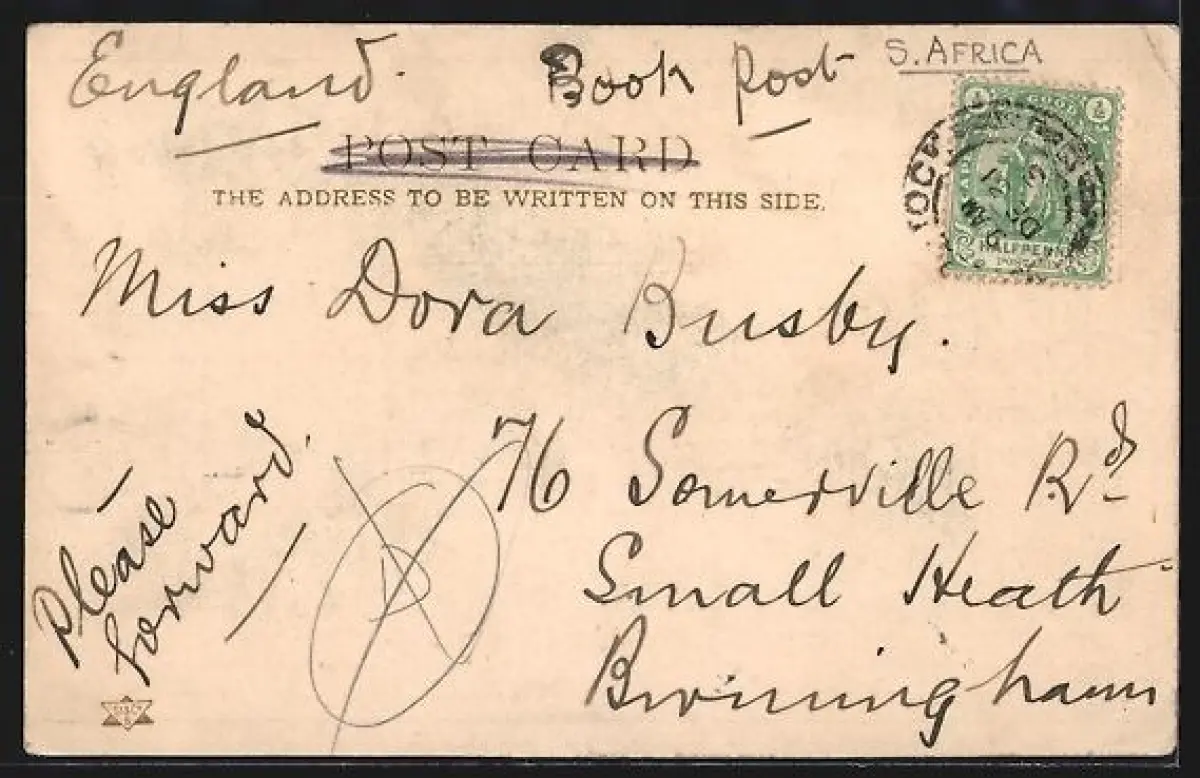 England. Book Post S. AFRICA
POST CARD
THE ADDRESS TO BE WRITTEN ON THIS SIDE.
HALFPENNY
Miss Dora Busby.
76 Somerville Rd
Small Heath
Birmingham
Please
forward.
D